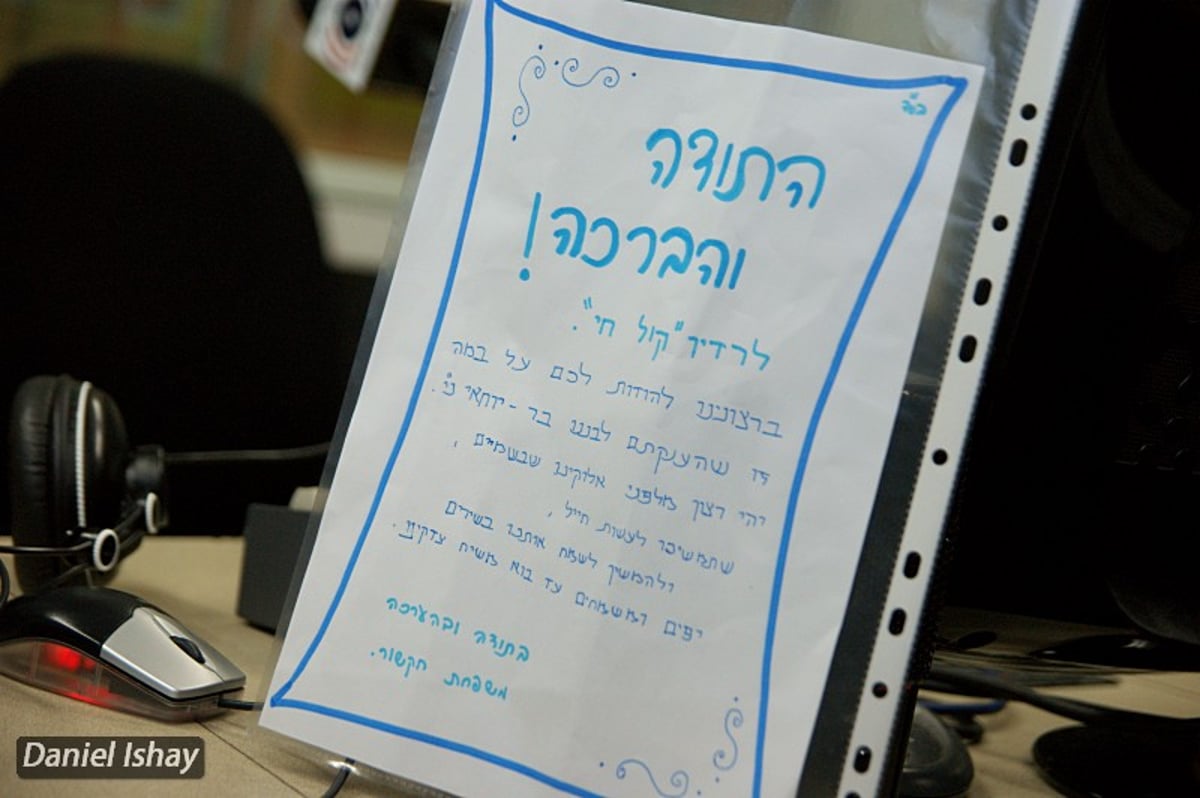 בס"ד
התודה
והברכה!
לרדיו "קול חי".
ברצונינו להודות לכם על במה
זו שהענקתם לבננו בר-יוחאי ני"ו.
יהי רצון מלפני אלוקינו שבשמיים,
שתמשיכו לעשות חייל,
ולהמשיך לשמח אותנו בשירים
יפים ומשמחים עד בוא משיח צדקינו.
בתודה ובהערכה
משפחת חקשור.
Daniel Ishay